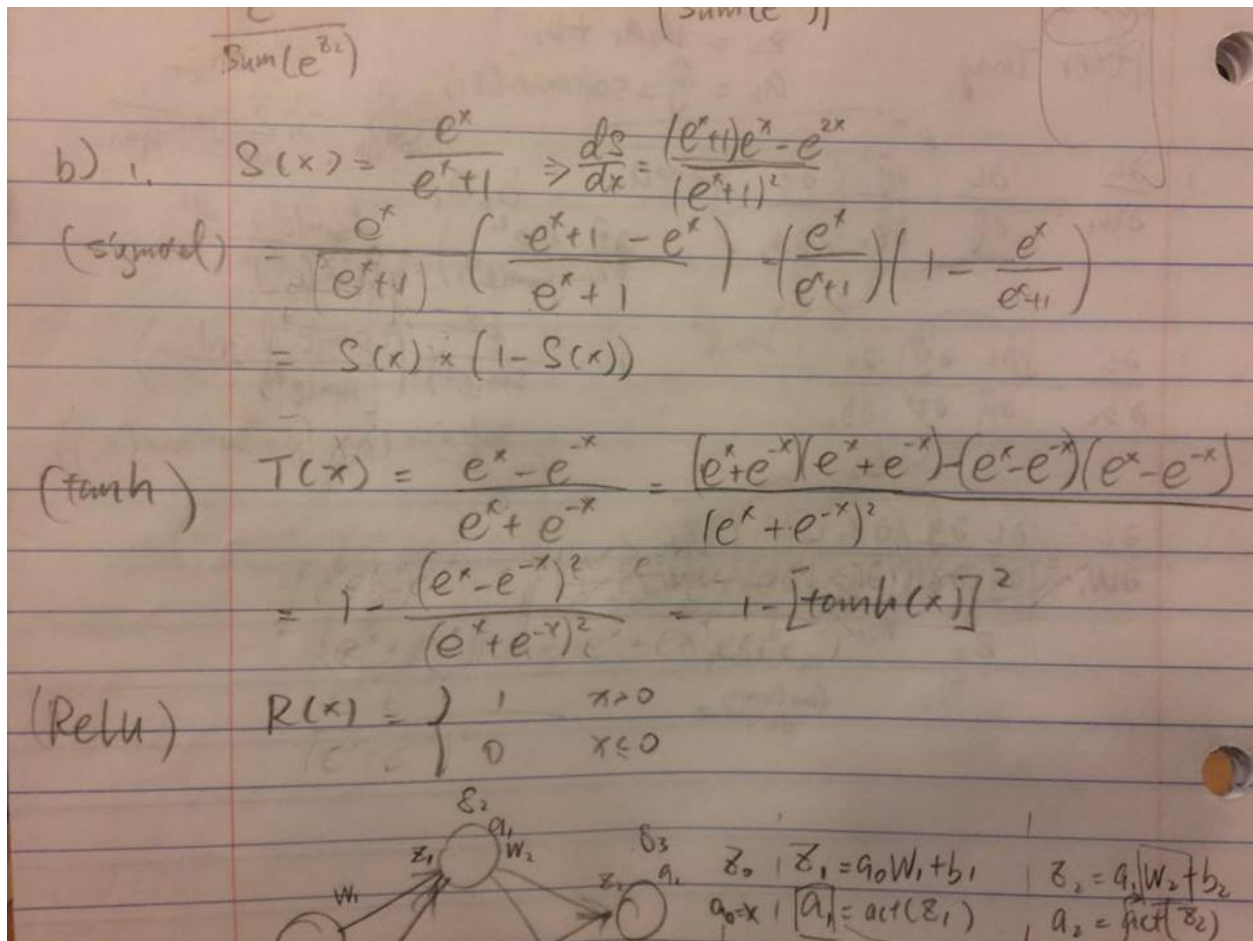 Sum(e^z₂)
b) i. S(x) = e^x/(e^x+1) ⇒ dS/dx = ((e^x+1)e^x - e^2x)/(e^x+1)²
(sigmoid) = e^x/(e^x+1) ( (e^x+1 - e^x)/(e^x+1) ) = (e^x/(e^x+1))(1 - e^x/(e^x+1))
= S(x) × (1 - S(x))
(tanh) T(x) = (e^x - e^-x)/(e^x + e^-x) = ((e^x+e^-x)(e^x+e^-x)-(e^x-e^-x)(e^x-e^-x))/(e^x+e^-x)²
= 1 - (e^x-e^-x)²/(e^x+e^-x)² = 1 - [tanh(x)]²
(Relu) R(x) = { 1 x>0
0 x≤0
δ₂
a₁ δ₃
z₁ W₂ z₂ z₀ | z₁ = a₀W₁+b₁ | z₂ = a₁W₂+b₂
W₁ a₀=x | a₁ = act(z₁) | a₂ = act(z₂)